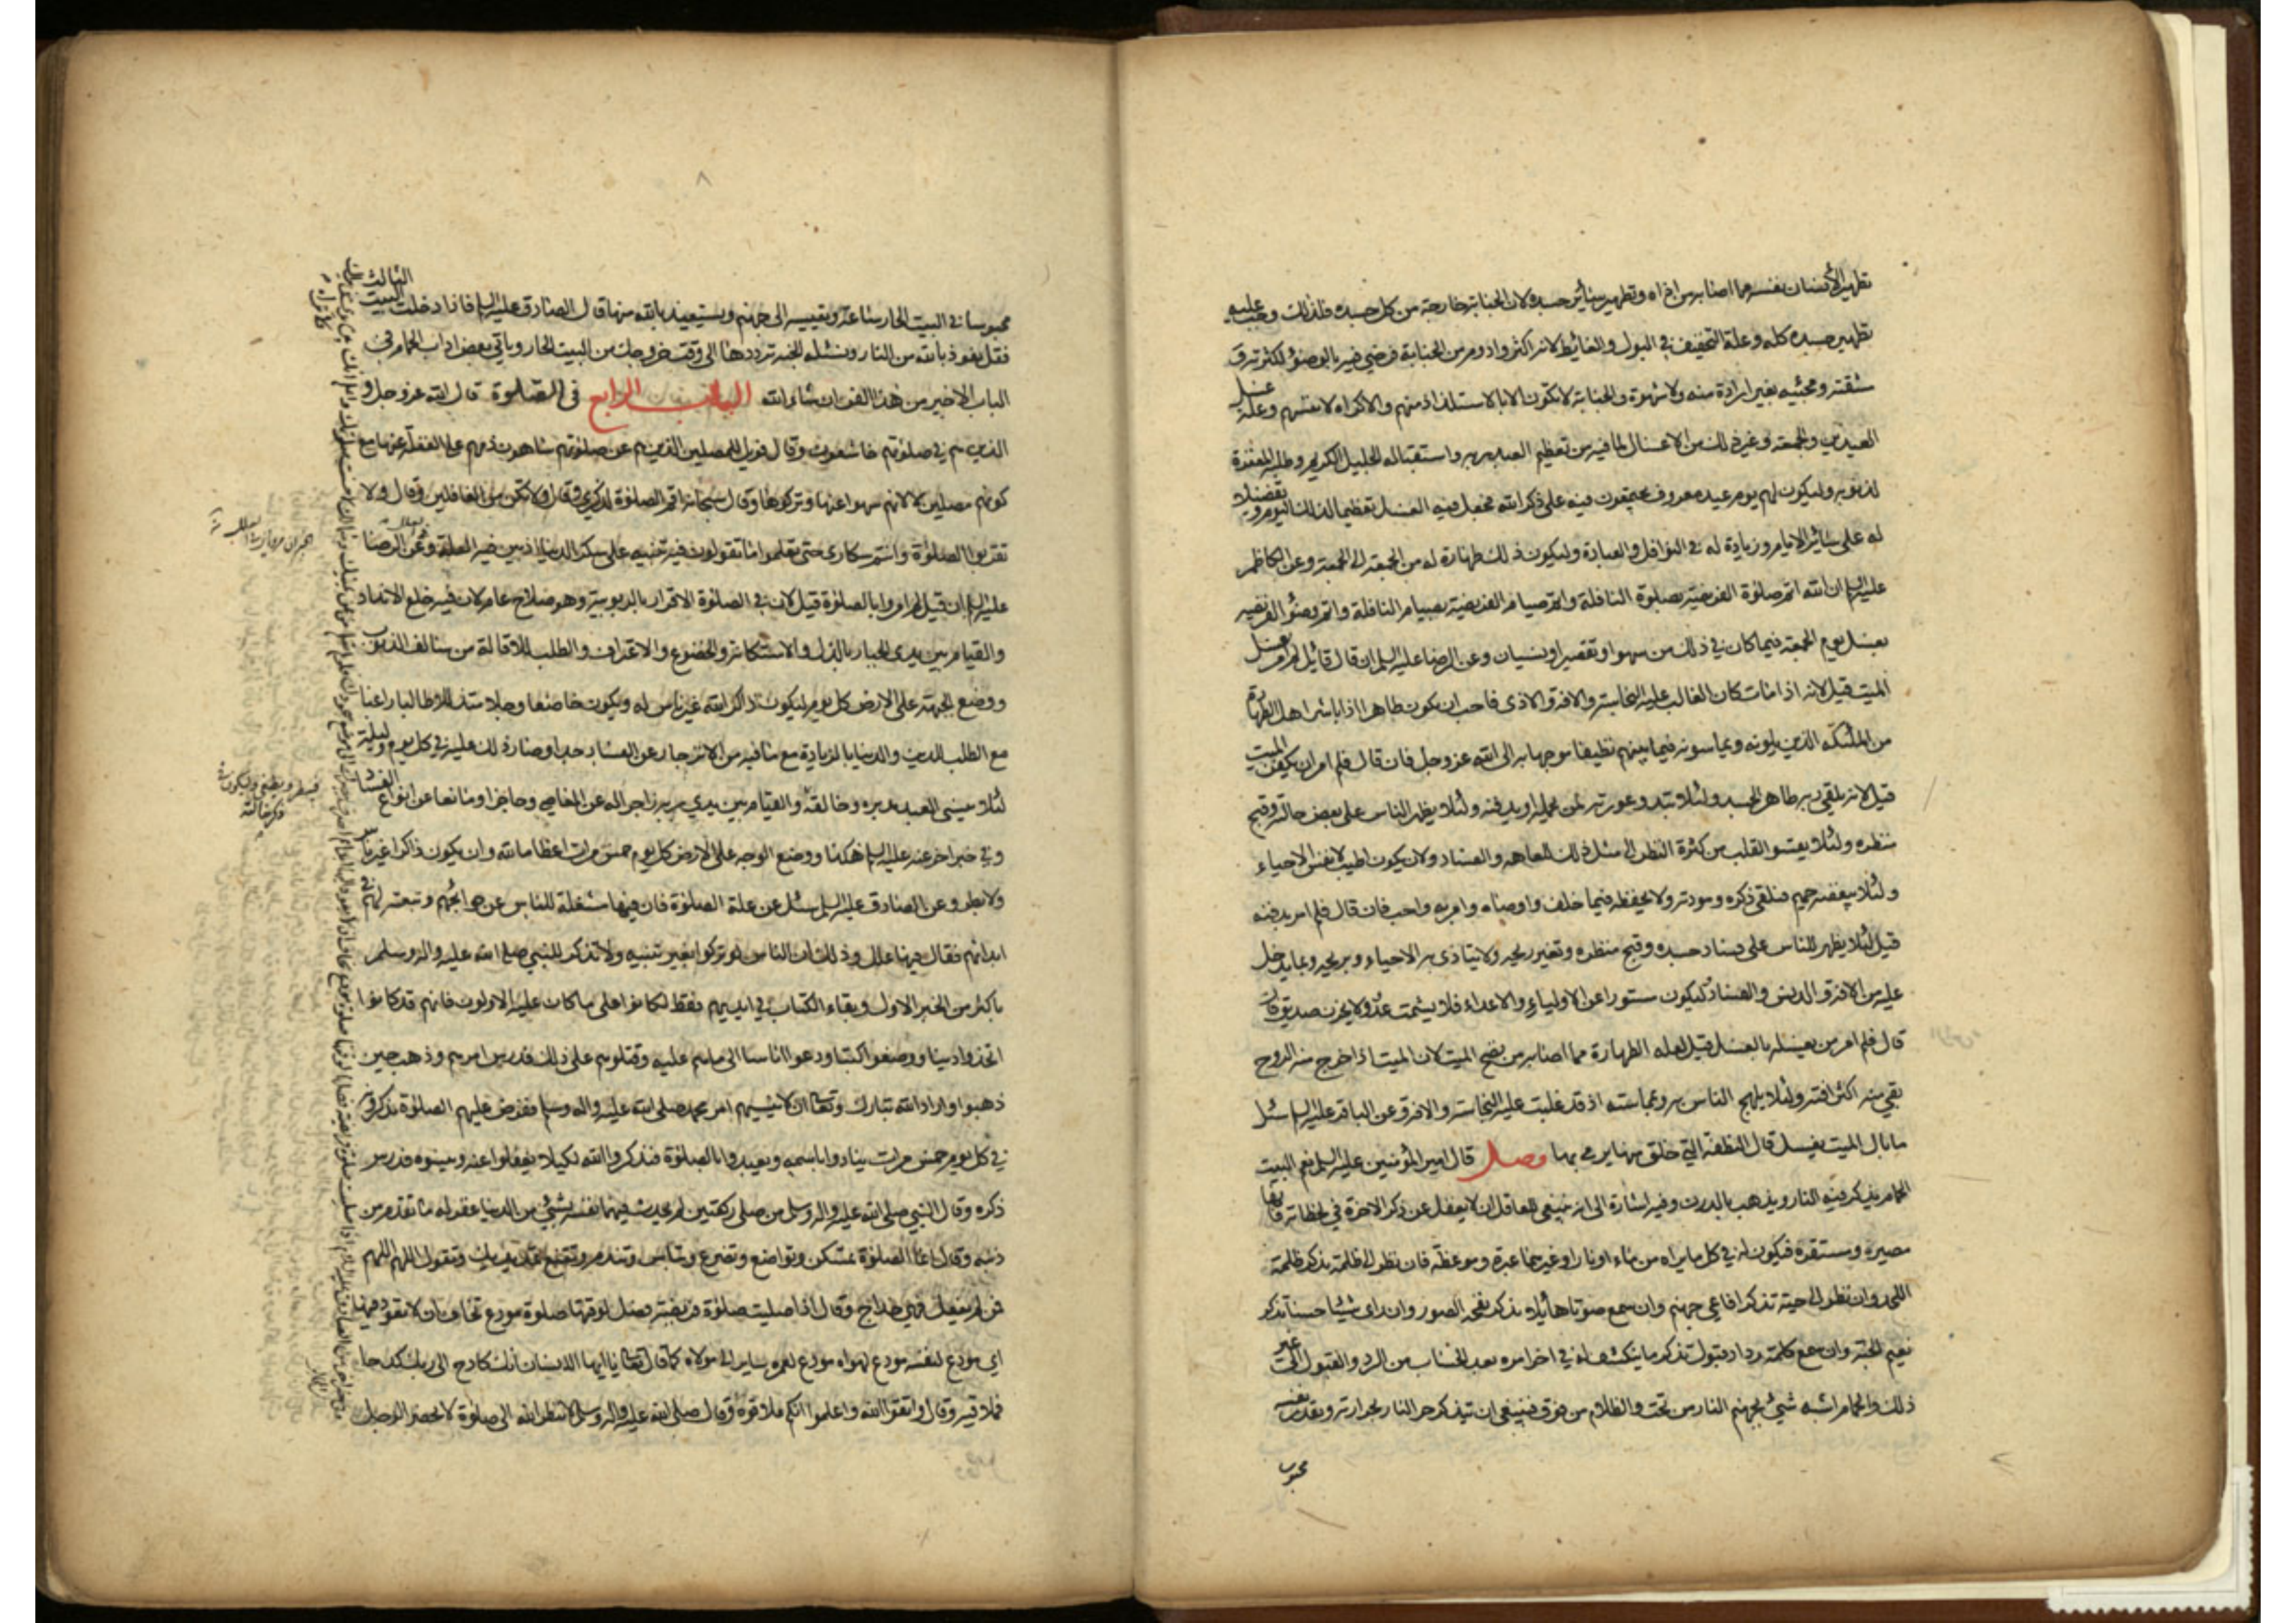 تطهير الانسان نفسه مما اصابه من اذاه وتطهير سائر جسده لان الجنابة خارجة من كل جسده فلذلك وجب عليه
تطهير جسده كله وعلة التخفيف في البول والغائط لانه اكثر وادوم من الجنابة فرضي فيه بالوضوء لكثرته و
مشقته ومجيئه بغير ارادة منه ولا شهوة والجنابة لا تكون الا بالاستلذاذ منهم والاكراه لانفسهم وعلة غسل
العيدين والجمعة وغير ذلك من الاغسال لما فيه من تعظيم العبد ربه واستقباله الجليل الكريم وطلبه المغفرة
لذنوبه وليكون لهم يوم عيد معروف يجتمعون فيه على ذكر الله فجعل فيه الغسل تعظيما لذلك اليوم وتفضيلا
له على سائر الايام وزيادة له في النوافل والعبادة وليكون ذلك طهارة له من الجمعة الى الجمعة وعن الكاظم
عليه السلم ان الله اتم صلوة الفريضة بصلوة النافلة واتم صيام الفريضة بصيام النافلة واتم وضوء الفريضة
بغسل يوم الجمعة فيما كان في ذلك من سهو او تقصير او نسيان وعن الرضا عليه السلم ان قال قائل لم امر بغسل
الميت قيل لانه اذا مات كان الغالب عليه النجاسة والافة والاذى فاحب ان يكون طاهرا اذا باشر اهل الطهارة
من الملئكة الذين يلونه ويماسونه فيما بينهم نظيفا موجها به الى الله عز وجل فان قال فلم امر ان يكفن الميت
قيل لانه يلقى ربه طاهر الجسد ولئلا تبدو عورته لمن يحمله او يدفنه ولئلا يظهر الناس على بعض حاله وقبح
منظره ولئلا يقسو القلب من كثرة النظر الى مثل ذلك للعاهة والفساد ولان يكون اطيب لانفس الاحياء
ولئلا يبغضه حميم فيلقى ذكره ومودته ولا يحفظه فيما خلف واوصاه وامر به واحب فان قال فلم امر بدفنه
قيل لئلا يظهر للناس على فساد جسده وقبح منظره وتغير ريحه ولا يتاذى به الاحياء وبريحه وبما يدخل
عليه من الافة والدنس والفساد وليكون مستورا عن الاولياء والاعداء فلا يشمت عدو ولا يحزن صديق فان
قال فلم امر من يغسله بالغسل قيل لعلة الطهارة مما اصابه من نضح الميت لان الميت اذا خرج منه الروح
بقي منه اكثر افته ولئلا يلهج الناس به وبمماسته اذ قد غلبت عليه النجاسة والافة وعن الباقر عليه السلم سئل
ما بال الميت يغسل قال النطفة التي خلق منها يرمي بها فصل قال امير المؤمنين عليه السلم نعم البيت
الحمام يذكر فيه النار ويذهب بالدرن وفيه اشارة الى انه ينبغي للعاقل ان لا يغفل عن ذكر الاخرة في لحظاته فانها
مصيره ومستقره فيكون له في كل ما يراه من ماء او نار او غيرهما عبرة وموعظة فان نظر الى ظلمة يذكر ظلمة
اللحد وان نظر الى حية تذكر افاعي جهنم وان سمع صوتا هائلا يذكر نفخ الصور وان راى شيئا حسنا تذكر
نعيم الجنة وان سمع كلمة رد او قبول تذكر ما ينكشف له في اخر امره بعد الحساب من الرد والقبول الى غير
ذلك والحمام اشبه شئ بجهنم النار من تحت والظلام من فوق فينبغي ان يتذكر حر النار بحرارته ويقدر نفسه
محبوسا
محبوسا في البيت الحار ساعة وتقيسه الى جهنم ويستعيذ بالله منها قال الصادق عليه السلم فاذا دخلت البيت الثالث
فقل نعوذ بالله من النار ونسئله الجنة ترددها الى وقت خروجك من البيت الحار وياتي بعض اداب الحمام في
الباب الاخير من هذا الفن ان شاء الله الباب الرابع في الصلوة قال الله عز وجل و
الذين هم في صلوتهم خاشعون وقال فويل للمصلين الذين هم عن صلوتهم ساهون ذمهم على الغفلة عنها مع
كونهم مصلين لا لانهم سهوا عنها وتركوها وقال سبحانه اقم الصلوة لذكري وقال ولا تكن من الغافلين وقال ولا
تقربوا الصلوة وانتم سكارى حتى تعلموا ما تقولون فيه تنبيه على سكر الدنيا اذ بين فيه العلة وعن الرضا
عليه السلم ان قيل لم امروا بالصلوة قيل لان في الصلوة الاقرار بالربوبية وهو صلاح عام لان فيه خلع الانداد
والقيام بين يدي الجبار بالذل والاستكانة والخضوع والاعتراف والطلب للاقالة من سالف الذنوب
ووضع الجبهة على الارض كل يوم ليكون ذاكرا لله غير ناس له ويكون خاضعا وجلا متذللا طالبا راغبا
مع الطلب للدين والدنيا بالزيادة مع ما فيه من الانزجار عن الفساد جدا وصار ذلك عليه في كل يوم وليلة
لئلا ينسى العبد مدبره وخالقه والقيام بين يدي ربه زاجرا له عن المعاصي وحاجزا ومانعا عن انواع الفساد
وفي خبر اخر عنه عليه السلم هكذا ووضع الوجه على الارض كل يوم خمس مرات اعظاما لله وان يكون ذاكرا غير ناس
ولا بطر وعن الصادق عليه السلم سئل عن علة الصلوة فان فيها مشغلة للناس عن حوائجهم ومتعبة لهم في
ابدانهم فقال فيها علل وذلك ان الناس لو تركوا بغير تنبيه ولا تذكر للنبي صلى الله عليه واله وسلم
باكثر من الخبر الاول وبقاء الكتاب في ايديهم فقط لكانوا على ما كان عليه الاولون فانهم قد كانوا
اتخذوا دينا ووضعوا كتبا ودعوا اناسا الى ما هم عليه وقتلوهم على ذلك فدرس امرهم وذهب حين
ذهبوا واراد الله تبارك وتعالى ان لا ينسيهم امر محمد صلى الله عليه واله وسلم ففرض عليهم الصلوة يذكرونه
في كل يوم خمس مرات ينادون باسمه وتعبدوا بالصلوة فذكروا الله لكيلا يغفلوا عنه وينسوه فدرس
ذكره وقال النبي صلى الله عليه واله وسلم من صلى ركعتين لم يحدث فيهما نفسه بشئ من الدنيا غفر له ما تقدم من
ذنبه وقال انما الصلوة تمسكن وتواضع وتضرع وتبأس وتندم وتقنع بمد يديك وتقول اللهم اللهم
فمن لم يفعل فهي خداج وقال اذا صليت صلوة فريضة فصل لوقتها صلوة مودع تخاف ان لا تعود فيها
اي مودع لنفسه مودع لهواه مودع لعمره ساير الى مولاه كما قال تعالى يا ايها الانسان انك كادح الى ربك كدحا
فملاقيه وقال واتقوا الله واعلموا انكم ملاقوه وقال صلى الله عليه واله وسلم لا ينظر الله الى صلوة لا يحضر الرجل